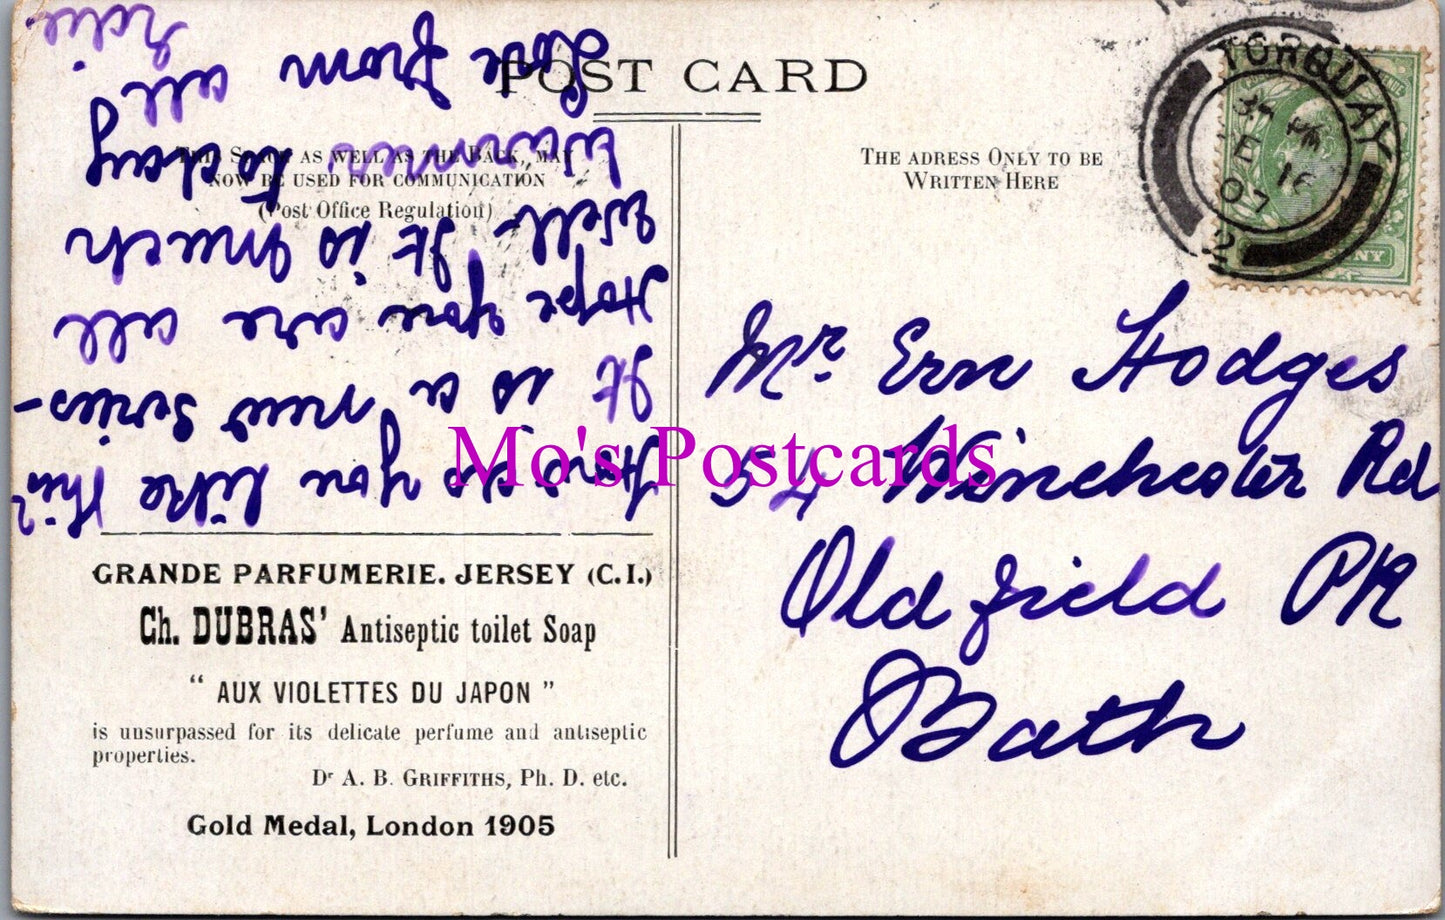 POST CARD
THIS SPACE AS WELL AS THE BACK, MAY
NOW BE USED FOR COMMUNICATION
(Post Office Regulation)
THE ADRESS ONLY TO BE
WRITTEN HERE
TORQUAY
PM
FE 16
07
2
How do you like this?
It is a new series-
Hope you are all
well. It is much
warmer today
Love from all
Edie
Mr. Ern Hodges
54 Winchester Rd
Oldfield PK
Bath
GRANDE PARFUMERIE. JERSEY (C.I.)
Ch. DUBRAS' Antiseptic toilet Soap
“ AUX VIOLETTES DU JAPON ”
is unsurpassed for its delicate perfume and antiseptic
properties.
Dr A. B. GRIFFITHS, Ph. D. etc.
Gold Medal, London 1905
Mo's Postcards